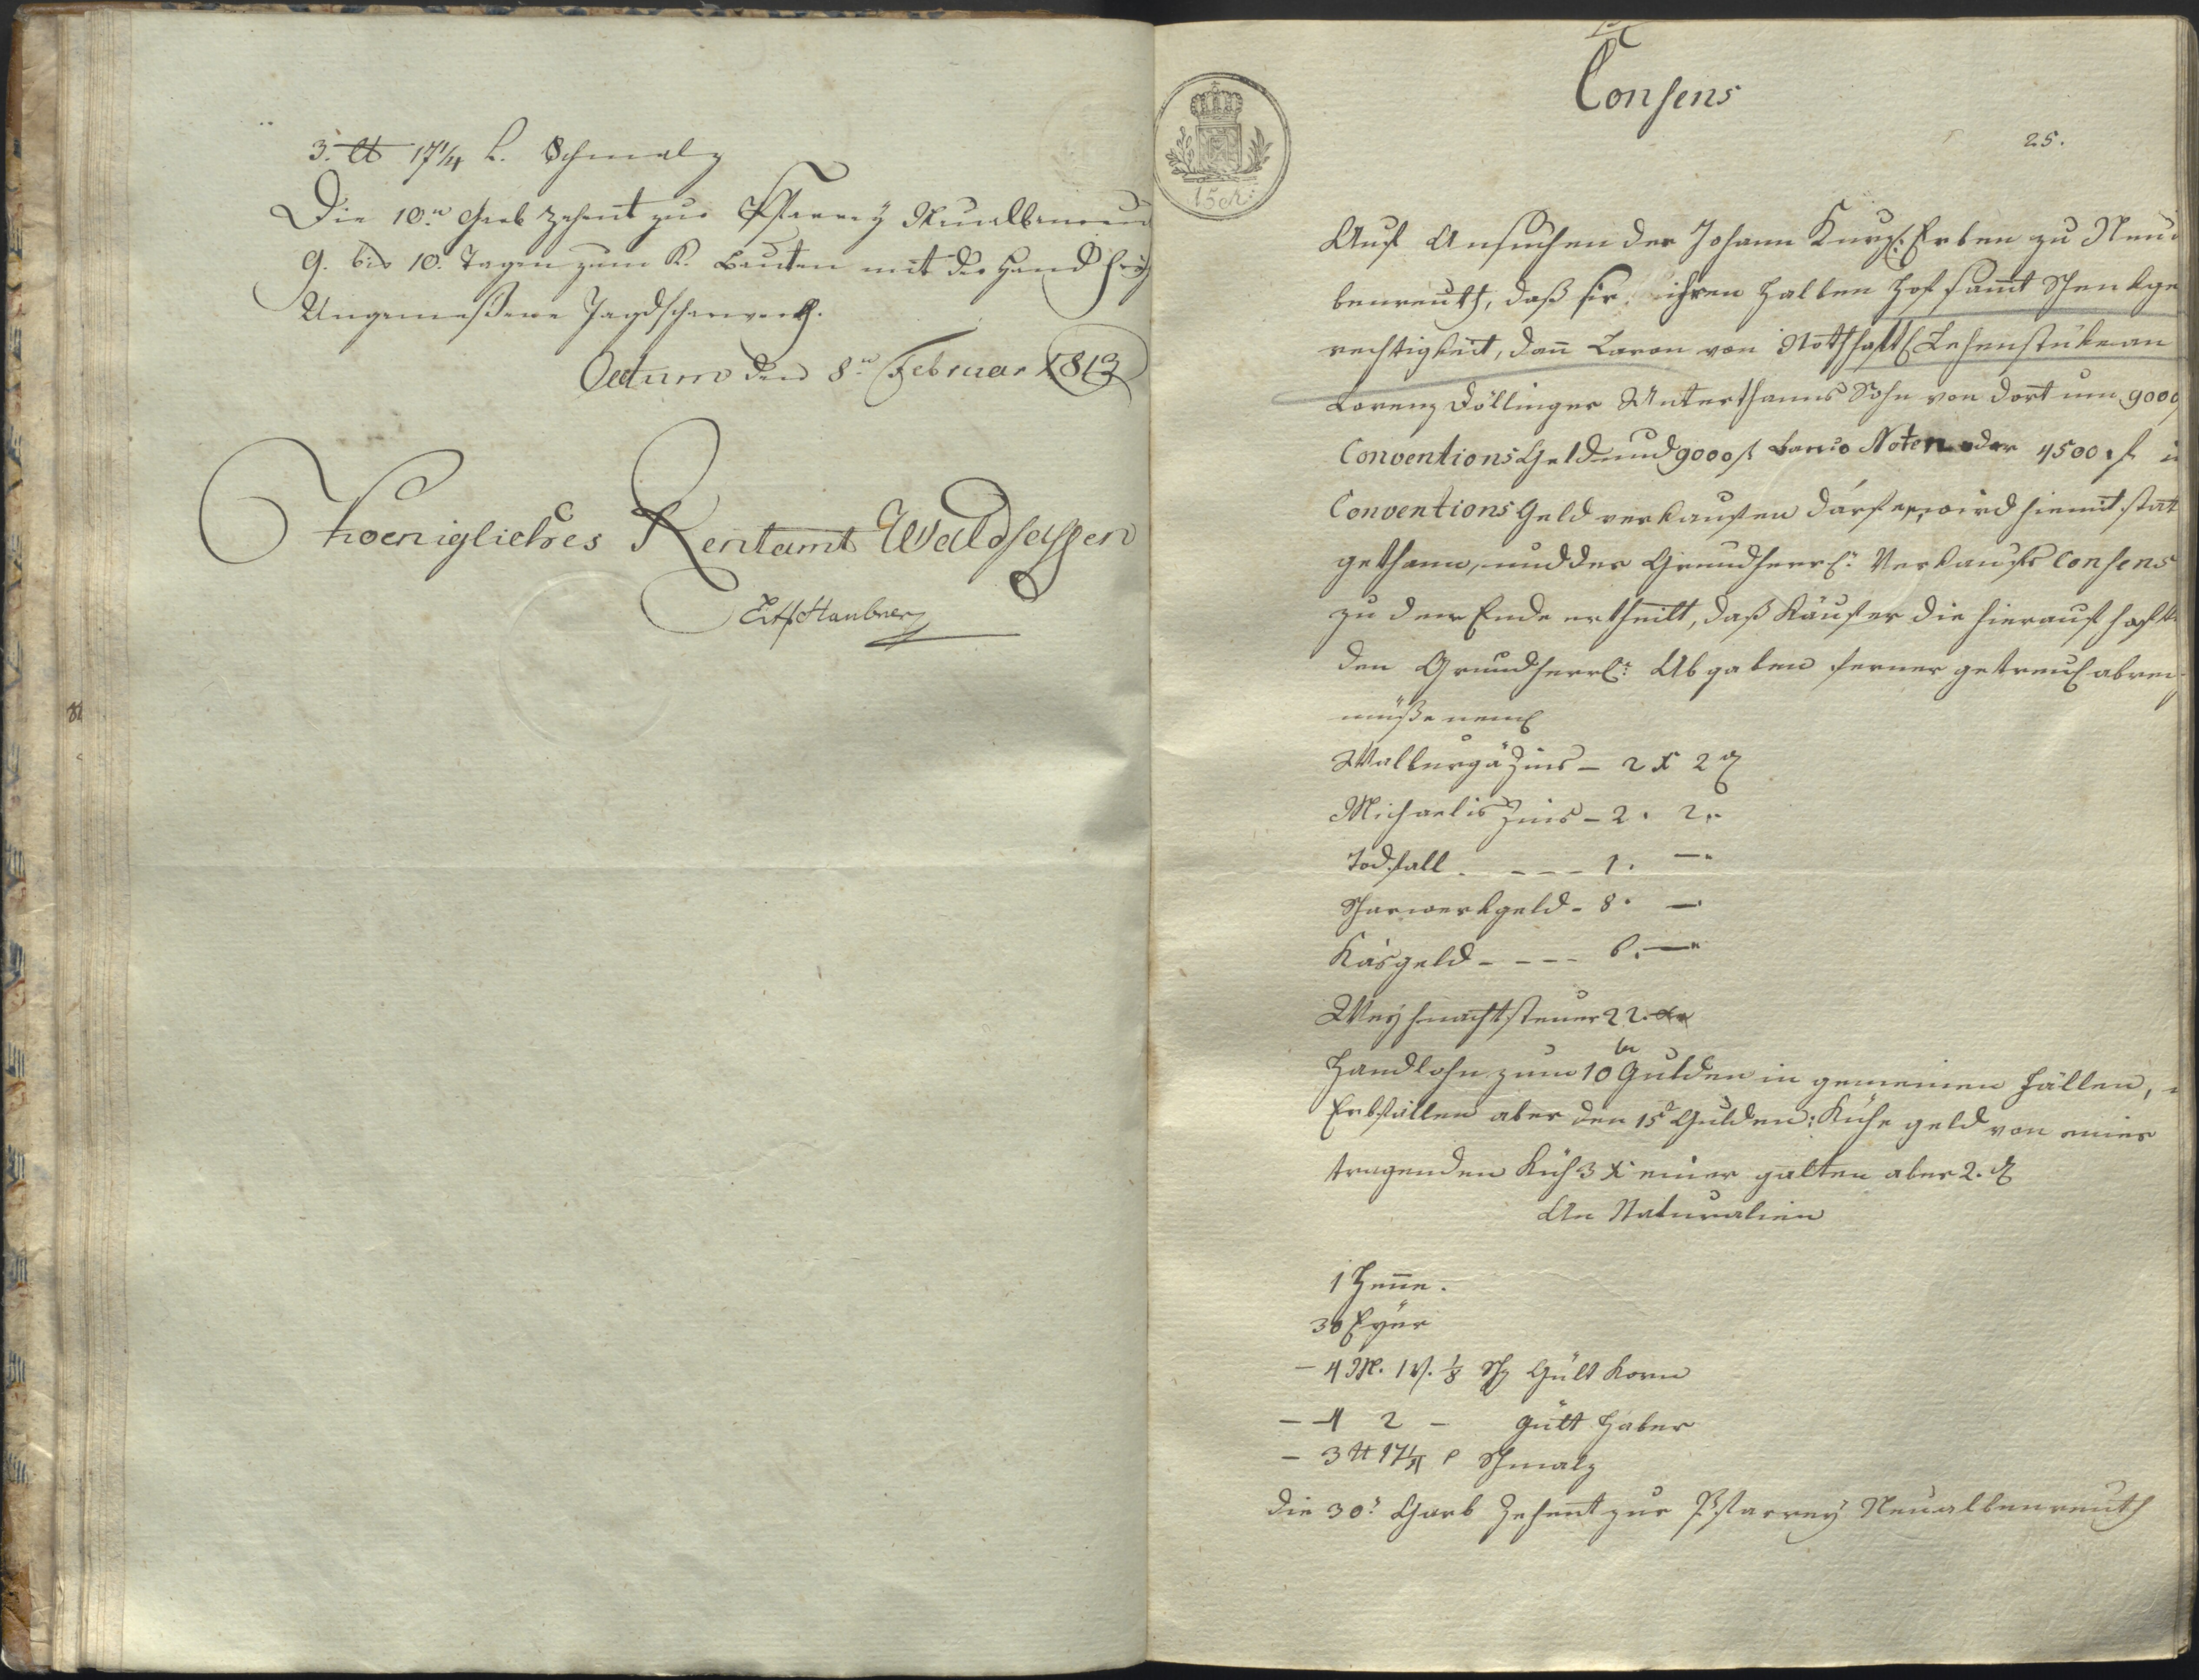 3. ℔ 17 1/4 L. Schmalz
Die 10.te Garb Zehent zur Pfarrey Neualbenreuth
9. bis 10. Tagen zum K. Bauten mit der Hand
Ungemeßene Jagdscharwerk.
Actum den 8.n Februar 1813
Koenigliches Rentamt Waldsassen
81
Consens
25.
15 kr:
Auf Ansuchen der Johann Kurz: Erben zu Neual
benreuth, daß sie ihren halben Hof samt Schenkge
rechtigkeit, dann Baron von Nothhaftl Lehenstüke an
Lorenz Döllinger Unterthanns Sohn von dort um 9000
Conventions Geld und 9000 f Banco Noten oder 4500 f i
Conventions Geld verkaufen därfen, wird hiemit statt
gethann, und der Grundherrl: Verkaufs Consens
zu dem Ende ertheilt, daß Käufer die hierauf hafte
den Grundherrl: Abgaben ferner getreul abrei
müße neml
Walburgä Zins – 2 x 2 ₰
Michaelis Zins – 2 . 2 „
Todfall . – – – 1 . — „
Scharwerkgeld – 8 . — „
Käsgeld – – – – 6 . — „
Weyhnachtsteuer 22. —
Handlohn zum 10ten Gulden in gemeinen Fällen, i
Erbfällen aber den 15 Gulden: Kühe geld von einer
tragenden Kuh 3 x einer galten aber 2. ₰
An Naturalien
1 Henne.
30 Eyer
– 4 M. 1 V. 1/8 Sch Gült Korn
– 4 2 – Gült Haber
– 3 ℔ 17 1/4 l Schmalz
die 30.t Garb Zehent zur Pfarrey Neualbenreuth